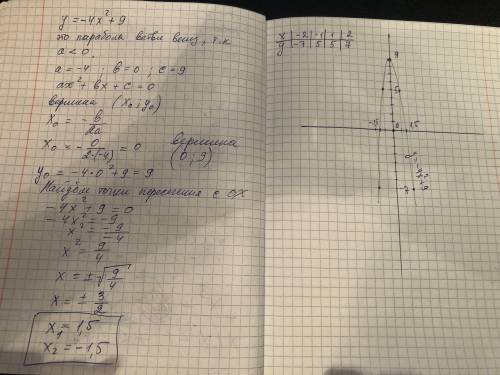 y = -4x² + 9
это парабола ветви вниз, т.к
a < 0.
a = -4 ; b = 0 ; c = 9
ax² + bx + c = 0
вершина (x₀ ; y₀)
x₀ = -b/2a
x₀ = -0/2·(-4) = 0 вершина (0 ; 9)
y₀ = -4·0² + 9 = 9
Найдём точки пересечения с OX
-4x² + 9 = 0
-4x² = -9
x² = -9/-4
x² = 9/4
x = ±√9/4
x = ± 3/2
x₁ = 1,5
x₂ = -1,5
x | -2 | -1 | 1 | 2
y | -7 | 5 | 5 | 7
9
5
-1,5 0 1,5
-7
y = -4x² + 9